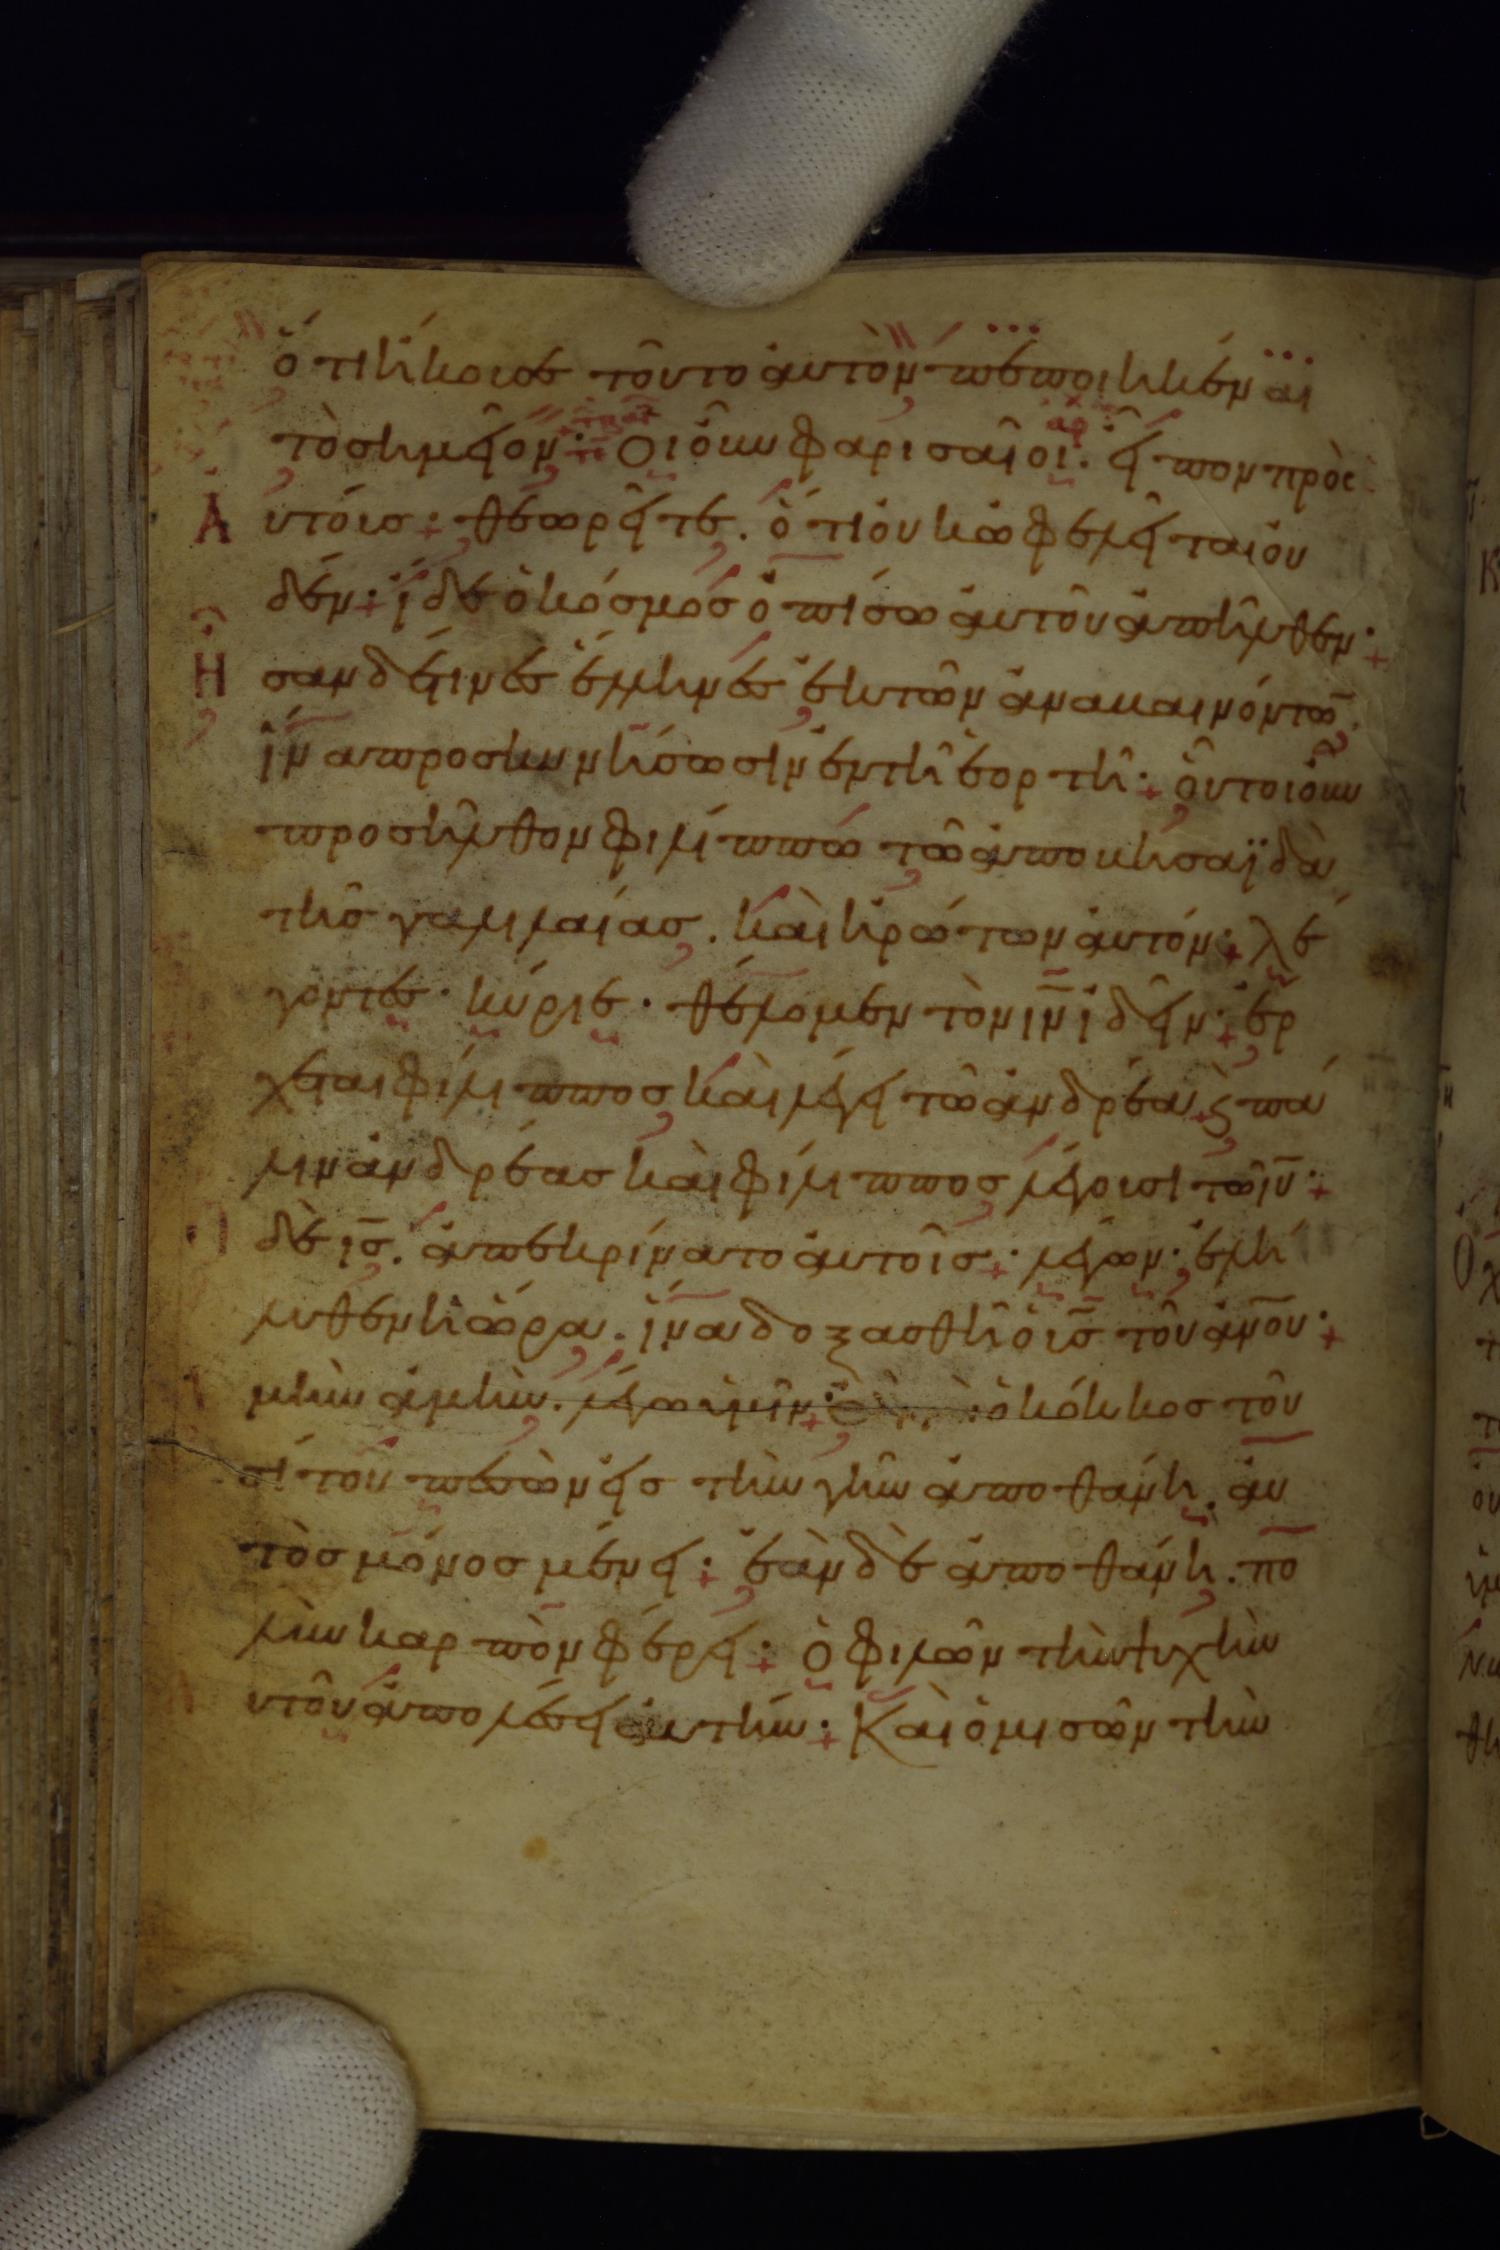 ὅτι ἤκουσε τοῦτο αὐτὸν πεποιηκέναι
τὸ σημεῖον· Οἱ οὖν φαρισαῖοι· εἶπον πρὸς
Αὐτούς· θεωρεῖτε. ὅτι οὐκ ὠφελεῖται οὐ
δέν· ἴδε ὁ κόσμος ὀπίσω αὐτοῦ ἀπῆλθεν·
Ησαν δέ τινες ἕλληνες ἐκ τῶν ἀναβαινόντω̅
ἵνα προσκυνήσωσιν ἐν τῇ ἑορτῇ· οὗτοι οὖν
προσῆλθον φιλίππω τῶ ἀπὸ βησαϊδὰ
τῆς γαλιλαίας. καὶ ἠρώτων αὐτόν· λέ
γοντες· κύριε· θέλομεν τὸν ι̅ν̅ ἰδεῖν· ἔρ
χεται φίλιππος καὶ λέγει τῶ ἀνδρέα, ϗ πά
λιν ἀνδρέας καὶ φίλιππος λέγουσι τῶ ι̅υ̅·
δὲ ι̅ς̅. ἀπεκρίνατο αὐτοῖς· λέγων· ἐλή
λυθεν ἡ ὥρα. ἵνα δοξασθῆ ὁ υ̅ς̅ τοῦ ἀν̅ου·
μὴν ἀμὴν. λέγω ὑμῖν· ὁ κόκκος τοῦ
σίτου πεσὼν εἰς τὴν γῆν ἀποθάνη. αὐ
τὸς μόνος μένει· ἐὰν δὲ ἀποθάνη. πο
λὺν καρπὸν φέρει· ὁ φιλῶν τὴν ψυχὴν
υτοῦ ἀπολέσει αὐτήν· Καὶ ὁ μισῶν τὴν